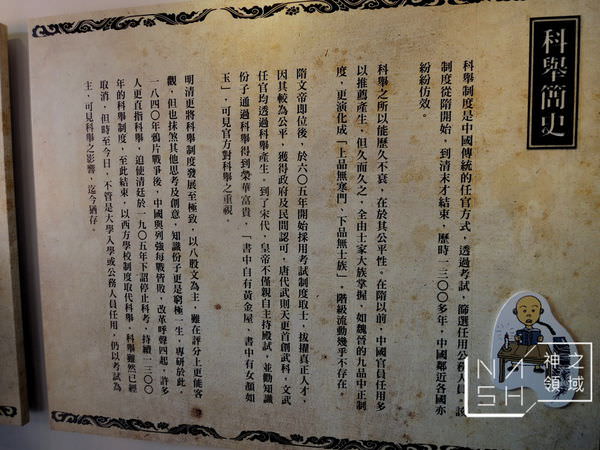 科舉簡史
科舉制度是中國傳統的任官方式，透過考試，篩選任用公務人員。該
制度從隋開始，到清末才結束，歷時一三○○多年，中國鄰近各國亦
紛紛仿效。
科舉之所以能歷久不衰，在於其公平性。在隋以前，中國官員任用多
以推薦產生，但久而久之，全由士家大族掌握，如魏晉的九品中正制
度，更演化成「上品無寒門、下品無士族」，階級流動幾乎不存在。
隋文帝即位後，於六○五年開始採用考試制度取士，拔擢真正人才，
因其較為公平，獲得政府及民間認可，唐代武則天更首創武科，文武
任官均透過科舉產生。到了宋代，皇帝不僅親自主持殿試，並勸知識
份子通過科舉得到榮華富貴，「書中自有黃金屋，書中有女顏如
玉」，可見官方對科舉之重視。
明清更將科舉制度發展至極致，以八股文為主，雖在評分上更能客
觀，但也抹煞其他思考及創意，知識份子更是窮極一生，專研於此。
一八四○年鴉片戰爭後，中國與列強每戰皆敗，改革呼聲四起，許多
人更直指科舉，迫使清廷於一九○五年下詔停止科考，持續一三○○
年的科舉制度，至此結束，以西方學校制度取代科舉。科舉雖然已經
取消，但時至今日，不管是大學入學或公務人員任用，仍以考試為
主，可見科舉之影響，迄今猶存。
NASH
神之
領域